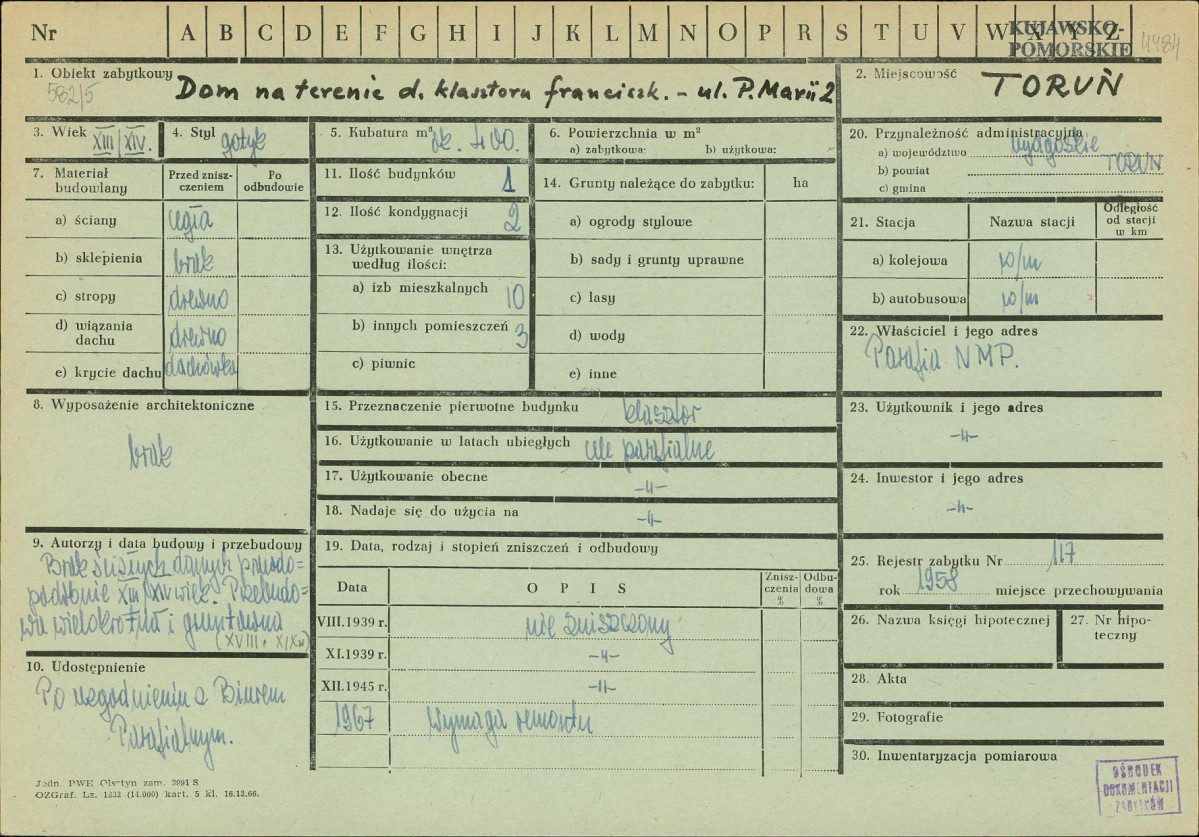 Nr A B C D E F G H I J K L M N O P R S T U V W X Y Z
KUJAWSKO-
POMORSKIE
4484
1. Obiekt zabytkowy
582/5
Dom na terenie d. klasztoru franciszk. - ul. P. Marii 2
2. Miejscowość TORUŃ
3. Wiek XIII/XIV.
4. Styl gotyk
5. Kubatura m³ ok. 400.
6. Powierzchnia w m²
a) zabytkowa: b) użytkowa:
7. Materiał budowlany
Przed zniszczeniem
Po odbudowie
a) ściany cegła
b) sklepienia brak
c) stropy drewno
d) wiązania dachu drewno
e) krycie dachu dachówka
11. Ilość budynków 1
12. Ilość kondygnacji 2
13. Użytkowanie wnętrza
według ilości:
a) izb mieszkalnych 10
b) innych pomieszczeń 3
c) piwnic
14. Grunty należące do zabytku: ha
a) ogrody stylowe
b) sady i grunty uprawne
c) lasy
d) wody
e) inne
20. Przynależność administracyjna
a) województwo bydgoskie
b) powiat TORUŃ
c) gmina
21. Stacja Nazwa stacji Odległość od stacji w km
a) kolejowa w/m
b) autobusowa w/m
22. Właściciel i jego adres
Parafia NMP.
8. Wyposażenie architektoniczne
brak
15. Przeznaczenie pierwotne budynku klasztor
16. Użytkowanie w latach ubiegłych cele parafialne
17. Użytkowanie obecne -„-
18. Nadaje się do użycia na -„-
23. Użytkownik i jego adres
-„-
24. Inwestor i jego adres
-„-
9. Autorzy i data budowy i przebudowy
Brak ścisłych danych prawdo=
podobnie XIII/XIV wiek. Przebudo=
wa wielokrotna i gruntowna
(XVIII i XIX w)
10. Udostępnienie
Po uzgodnieniu z Biurem
Parafialnym.
19. Data, rodzaj i stopień zniszczeń i odbudowy
Data OPIS Zniszczenia % Odbudowa %
VIII.1939 r. nie zniszczony
XI.1939 r. -„-
XII.1945 r. -„-
1967 Wymaga remontu
25. Rejestr zabytku Nr 117
rok 1958 miejsce przechowywania
26. Nazwa księgi hipotecznej
27. Nr hipoteczny
28. Akta
29. Fotografie
30. Inwentaryzacja pomiarowa
OŚRODEK
DOKUMENTACJI
ZABYTKÓW
Jedn. PWH Olsztyn zam. 3991 S
OZGraf. Lz. 1332 (14.000) kart. 5 kl. 16.12.66.